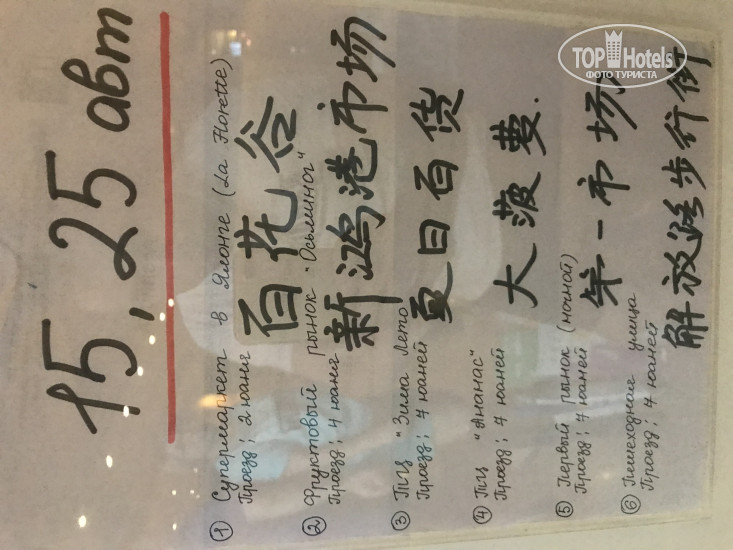 15, 25 авт
① Супермаркет в Ялонге (La Florette)
Проезд: 2 юаня
百花谷
② Фруктовый рынок "Осьминог"
Проезд: 4 юаня
新鸿港市场
③ ТЦ "Зима Лето
Проезд: 4 юаней
夏日百货
④ ТЦ "Ананас"
Проезд: 4 юаней
大菠萝.
⑤ Первый рынок (ночной)
Проезд: 4 юаней
第一市场
⑥ Пешеходная улица
Проезд: 4 юаней
解放路步行街
TOP Hotels
ФОТО ТУРИСТА